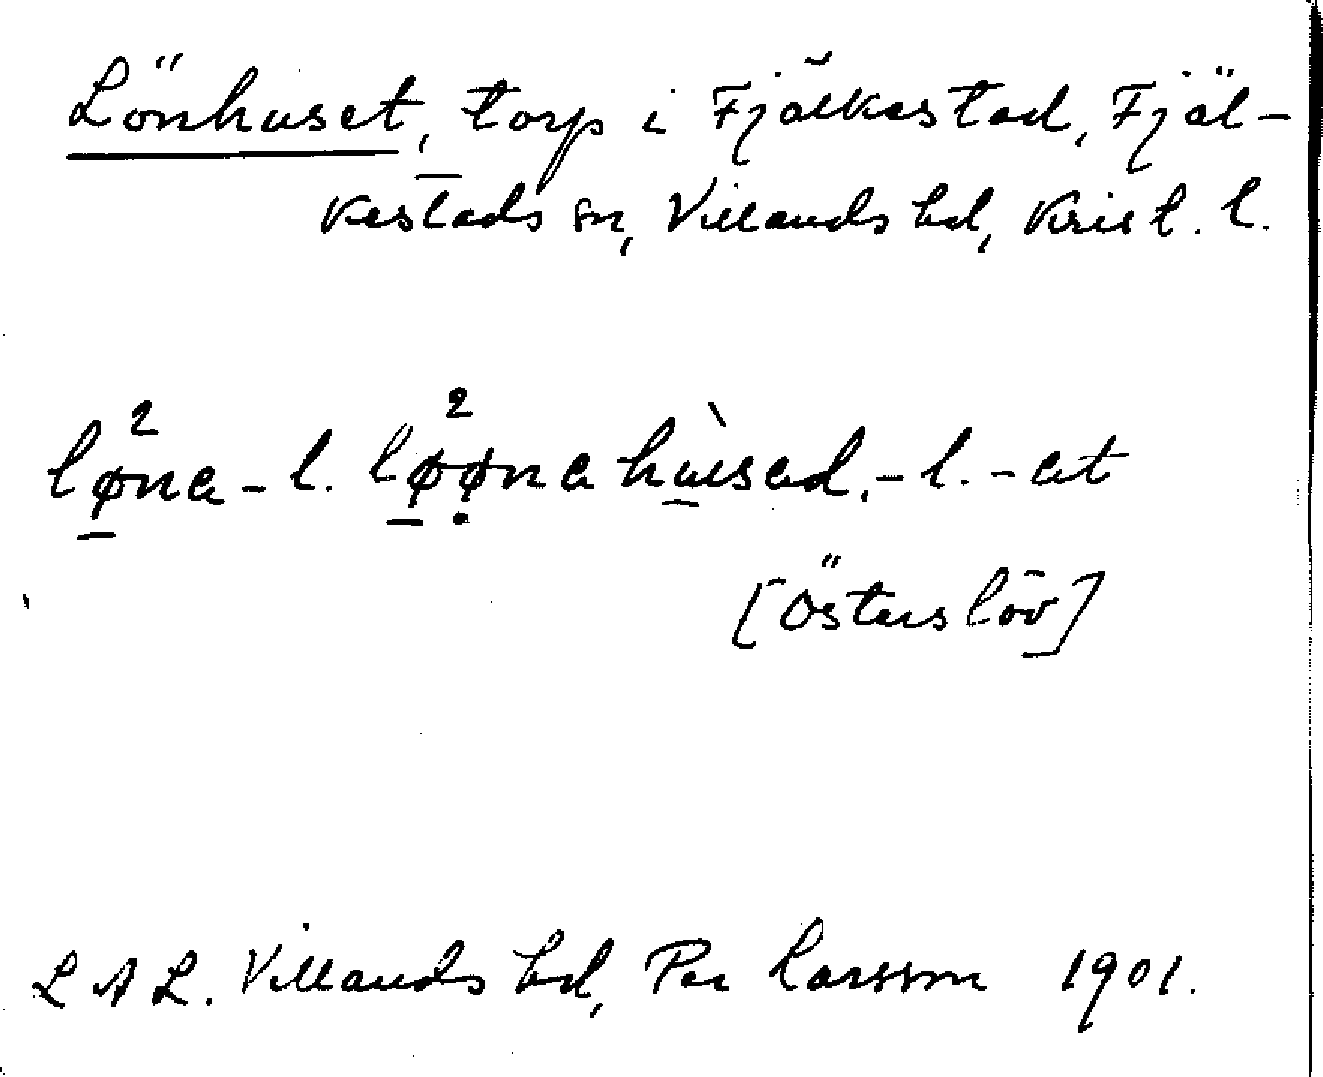 Lönhuset, torp i Fjälkestad, Fjäl-
kestads sn, Villands hd, Krist. l.
lø̱²na - l. lø̱²ø̣na hù̱sad, - l. - at
[Österslöv]
LAL. Villands hd, Per Larsson 1901.